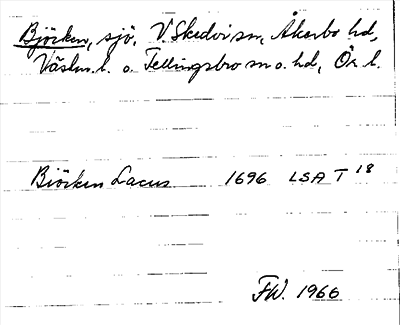 Björken, sjö, V. Skedvi sn, Åkerbo hd,
Västm. l. o. Fellingsbro sn o. hd, Ör. l.
Biörken Lacus 1696 LSA T 18
FW. 1966